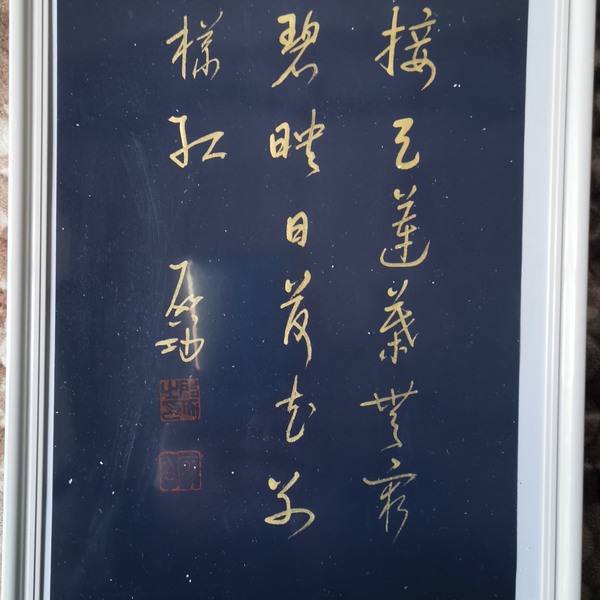 接天蓮葉無窮
碧映日荷花別
樣紅
啟功